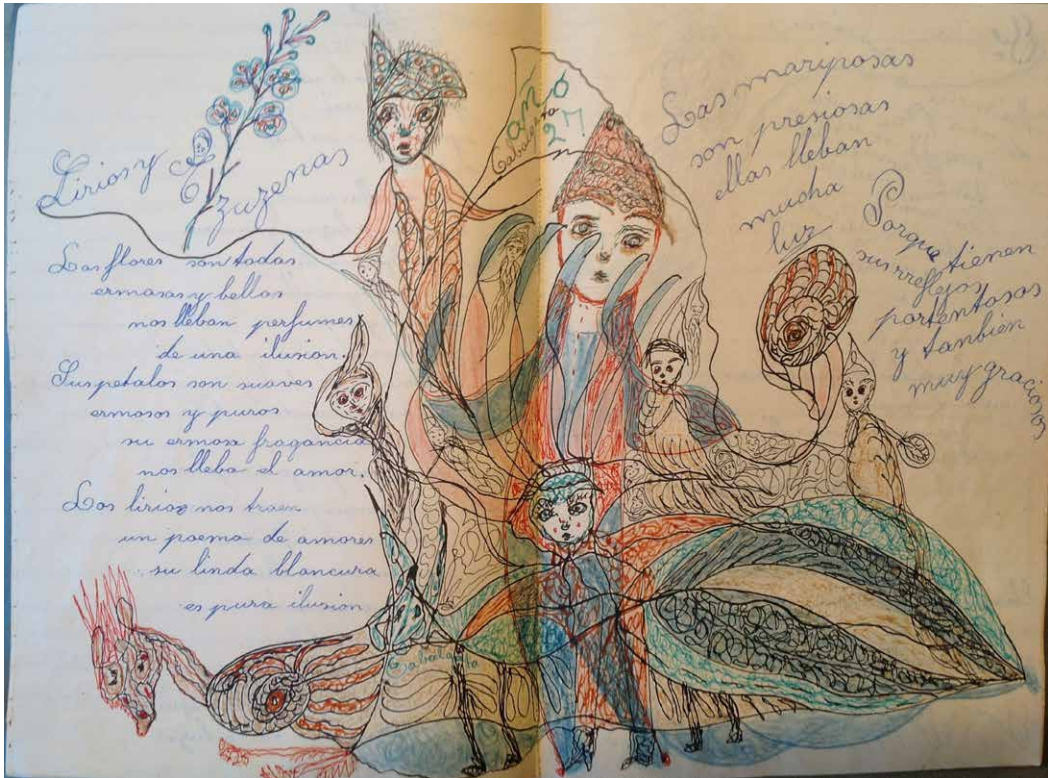 Lirios y
Azuzenas
Las flores son todas
ermosas y bellas
nos lleban perfumes
de una ilusion.
Sus petalos son suaves
ermosos y puros
su ermosa fragancia
nos lleba el amor.
Los lirios nos traen
un poema de amores
su linda blancura
es pura ilusion
año
27
Las mariposas
son presiosas
ellas lleban
mucha
luz
Porque tienen
sus rreflejos
portentosos
y tanbien
muy graciosos